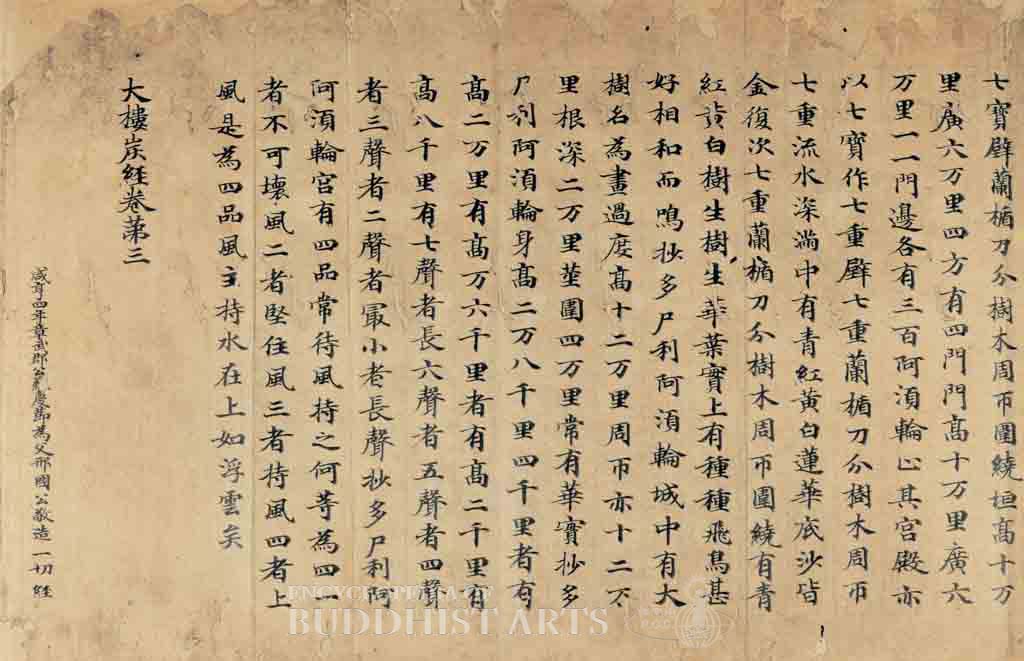 七寶壁蘭楯刀分樹木周帀圍繞垣高十万
里廣六万里四方有四門門高十万里廣六
万里一一門邊各有三百阿湏輪止其宮殿亦
以七寶作七重壁七重蘭楯刀分樹木周帀
七重流水深滿中有青紅黃白蓮華底沙皆
金復次七重蘭楯刀分樹木周帀圍繞有青
紅黃白樹生樹生華葉實上有種種飛鳥甚
好相和而鳴抄多尸利阿湏輪城中有大
樹名為畫過度高十二万里周帀亦十二万
里根深二万里莖圍四万里常有華實抄多
尸利阿湏輪身高二万八千里四千里者有
高二万里有高万六千里者有高二千里有
高八千里有七聲者長六聲者五聲者四聲
者三聲者二聲者冣小者長聲抄多尸利阿
阿湏輪宮有四品常待風持之何等為四
者不可壞風二者堅住風三者持風四者上
風是為四品風主持水在上如浮雲矣
大樓炭經卷第三
咸亨四年章武郡公蘇慶節為父邢國公敬造一切經
ENCYCLOPEDIA OF
BUDDHIST ARTS